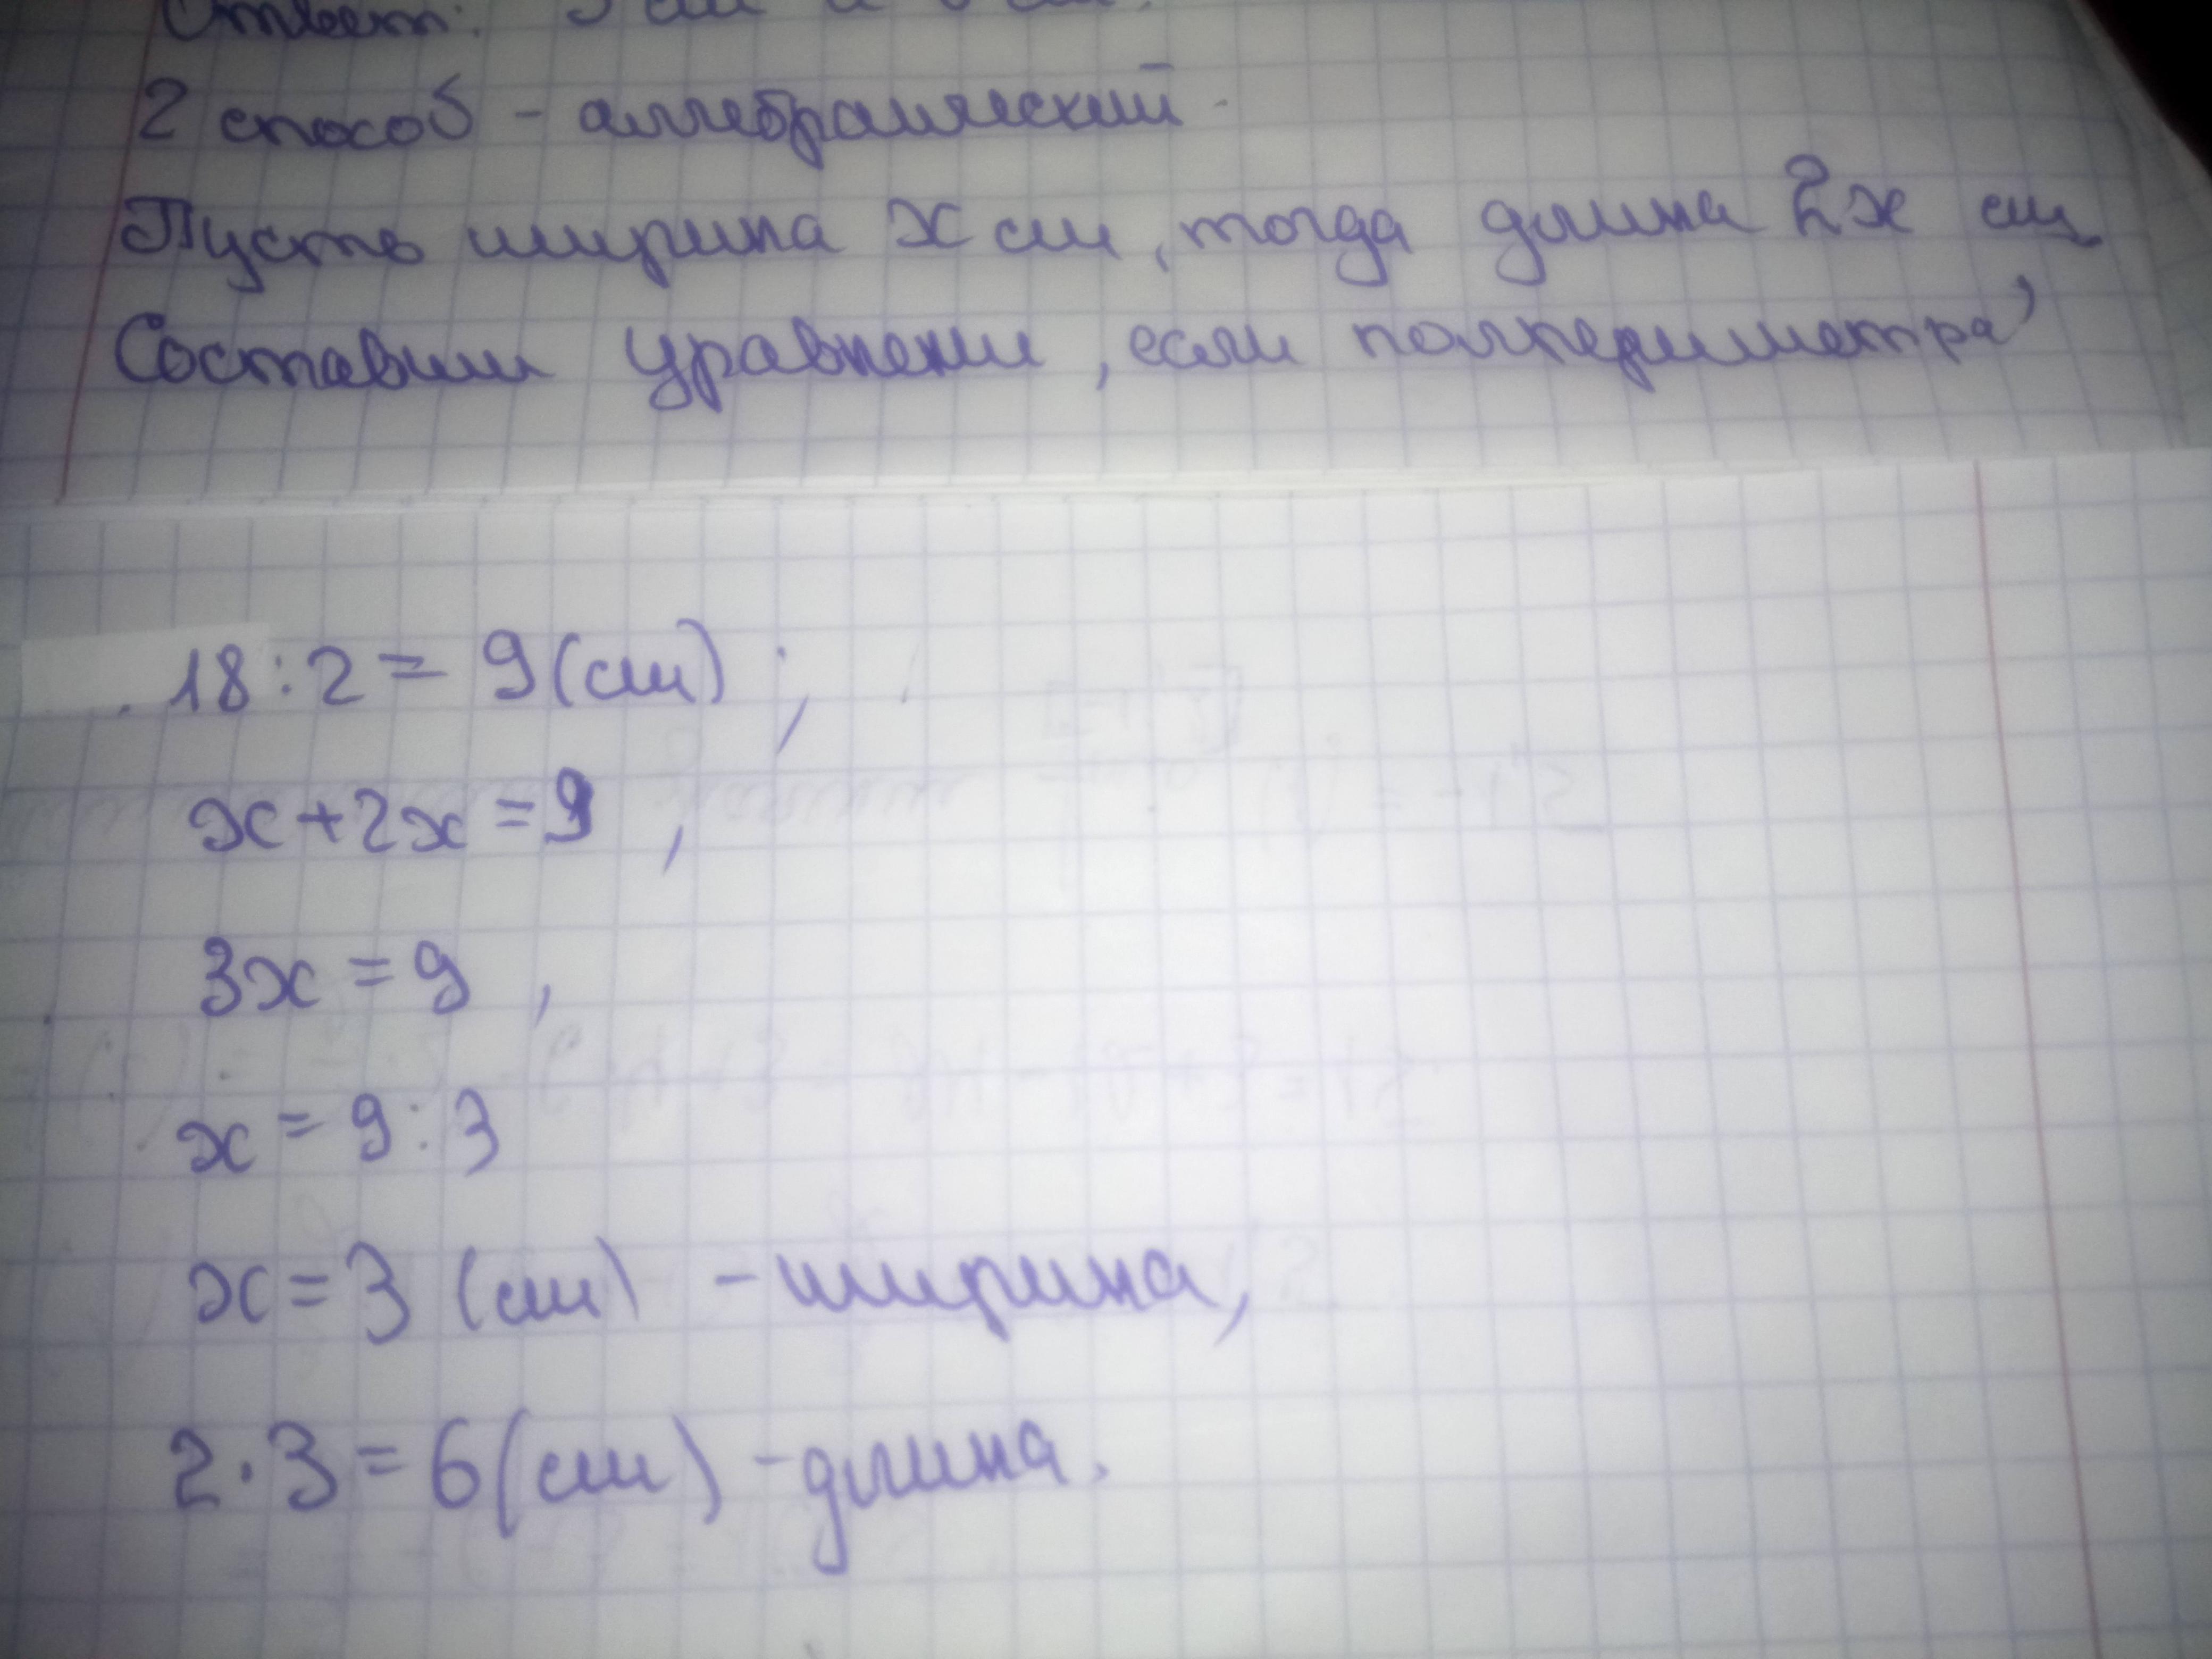 Ответ: 3 см и 6 см.
2 способ - алгебраический.
Пусть ширина x см, тогда длина 2x см.
Составим уравнени, если полпериметра,
18:2=9(см);
x+2x=9,
3x=9,
x=9:3
x=3 (см) - ширина,
2·3=6(см) - длина.